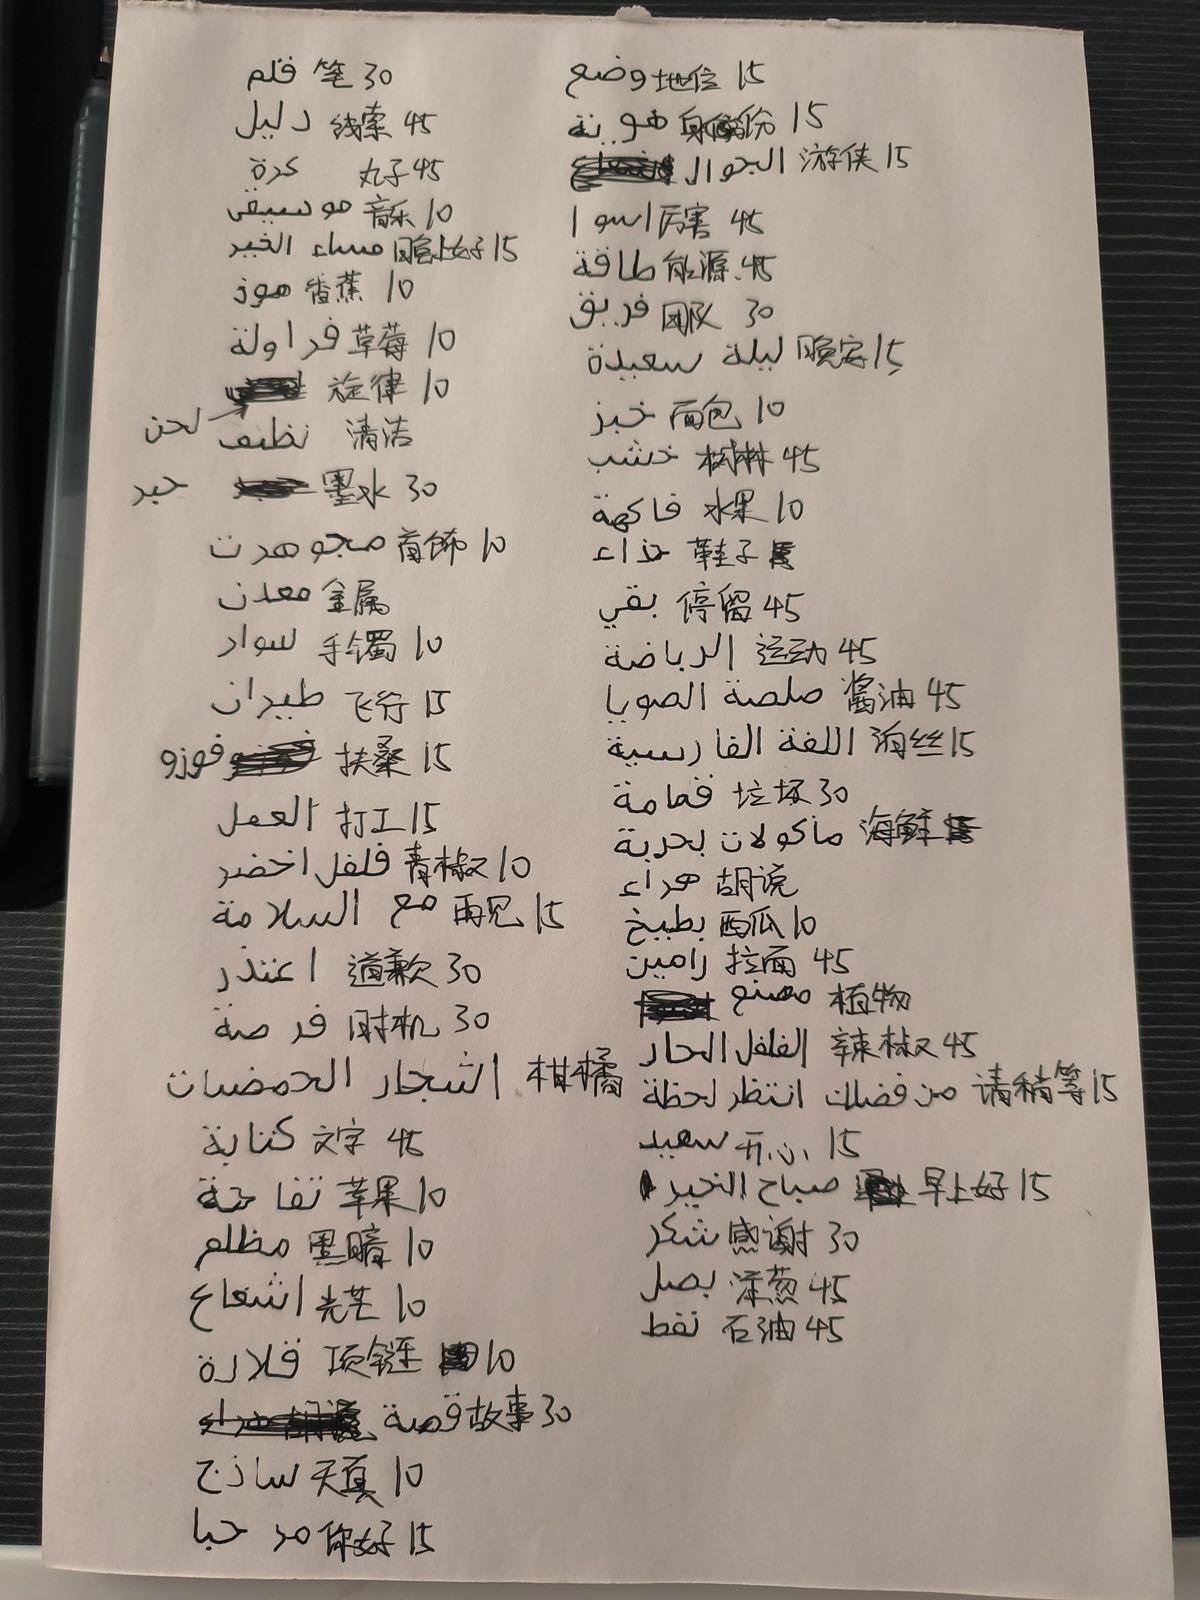 قلم 笔 30
دليل 线索 45
كرة 丸子 45
موسيقى 音乐 10
مساء الخير 晚上好 15
موز 香蕉 10
فراولة 草莓 10
旋律 10
لحن
نظيف 清洁
حبر 墨水 30
مجوهرت 首饰 10
معدن 金属
سوار 手镯 10
طيران 飞行 15
فوزو 扶桑 15
العمل 打工 15
فلفل اخضر 青椒 10
مع السلامة 再见 15
اعتذر 道歉 30
فرصة 时机 30
اشجار الحمضيات 柑橘
كتابة 文字 45
تفاحة 苹果 10
مظلم 黑暗 10
اشعاع 光芒 10
قلادة 项链 10
قصة 故事 30
ساذج 天真 10
مرحبا 你好 15
وضع 地位 15
هوية 身份 15
الجوال 游侠 15
اسوا 厉害 45
طاقة 能源 45
فريق 团队 30
ليلة سعيدة 晚安 15
خبز 面包 10
خشب 树林 45
فاكهة 水果 10
حذاء 鞋子
بقي 停留 45
الرياضة 运动 45
صلصة الصويا 酱油 45
اللغة الفارسية 海丝 15
قمامة 垃圾 30
ماكولات بحرية 海鲜
هراء 胡说
بطيخ 西瓜 10
رامين 拉面 45
مصنع 植物
الفلفل الحار 辣椒 45
من فضلك انتظر لحظة 请稍等 15
سعيد 开心 15
صباح الخير 早上好 15
شكر 感谢 30
بصل 洋葱 45
نفط 石油 45